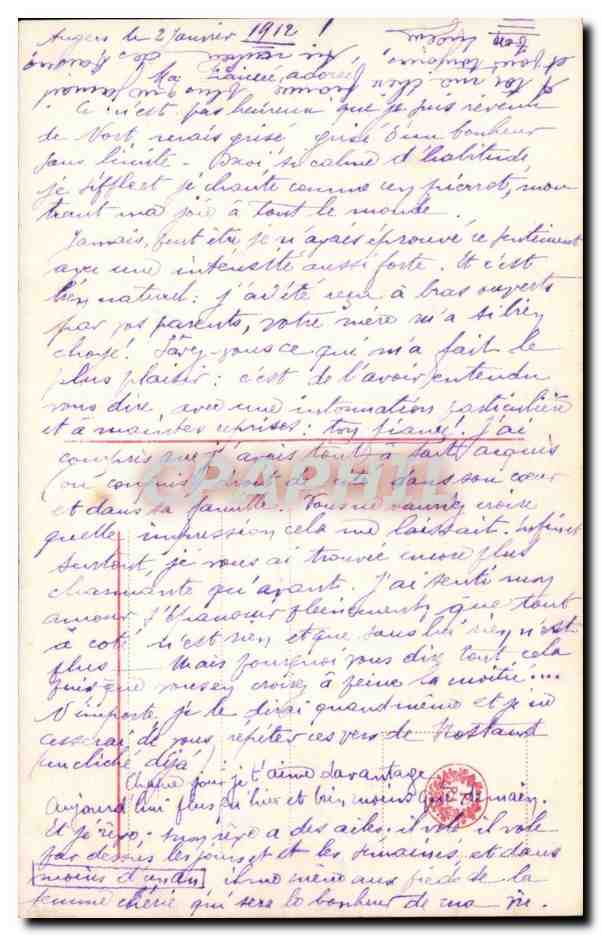 Angers le 2 Janvier 1912 !
Ma Fiancée adorée
Ce n'est pas heureux que je suis revenu
de Niort, mais grisé grisé d'un bonheur
sans limite - Moi si calme d'habitude
je siffle et je chante comme un pierrot, mon
trant ma joie à tout le monde.
Jamais, peut être je n'avais éprouvé ce sentiment
avec une intensité aussi forte. Et c'est
bien naturel : j'ai été reçu à bras ouverts
par vos parents, votre mère m'a si bien
choyé ! Savez-vous ce qui m'a fait le
plus plaisir : c'est de l'avoir entendu
vous dire avec une intonation particulière
et à maintes reprises : ton fiancé ! J'ai
compris que j'avais tout à fait acquis
(ou conquis) droit de cité dans son cœur
et dans sa famille. Vous ne sauriez croire
quelle impression cela me laissait. Enfin et
surtout, je vous ai trouvée encore plus
charmante qu'avant. J'ai senti mon
amour s'épanouir pleinement, que tout
à coté n'est rien et que sans lui rien n'est
plus — Mais pourquoi vous dire tout cela
puisque vous en croirez à peine la moitié....
N'importe, je le dirai quand même et je ne
cesserai de vous répéter ces vers de Rostand
(un cliché déjà)
Chaque jour je t'aime davantage
Aujourd'hui plus qu'hier et bien moins que demain.
Et je rêve. mon rêve a des ailes. il vole il vole
par dessus les jours et et les semaines, et dans
moins d'un an il me mène aux pieds de la
femme chérie qui sera le bonheur de ma vie.
CPAPHIL